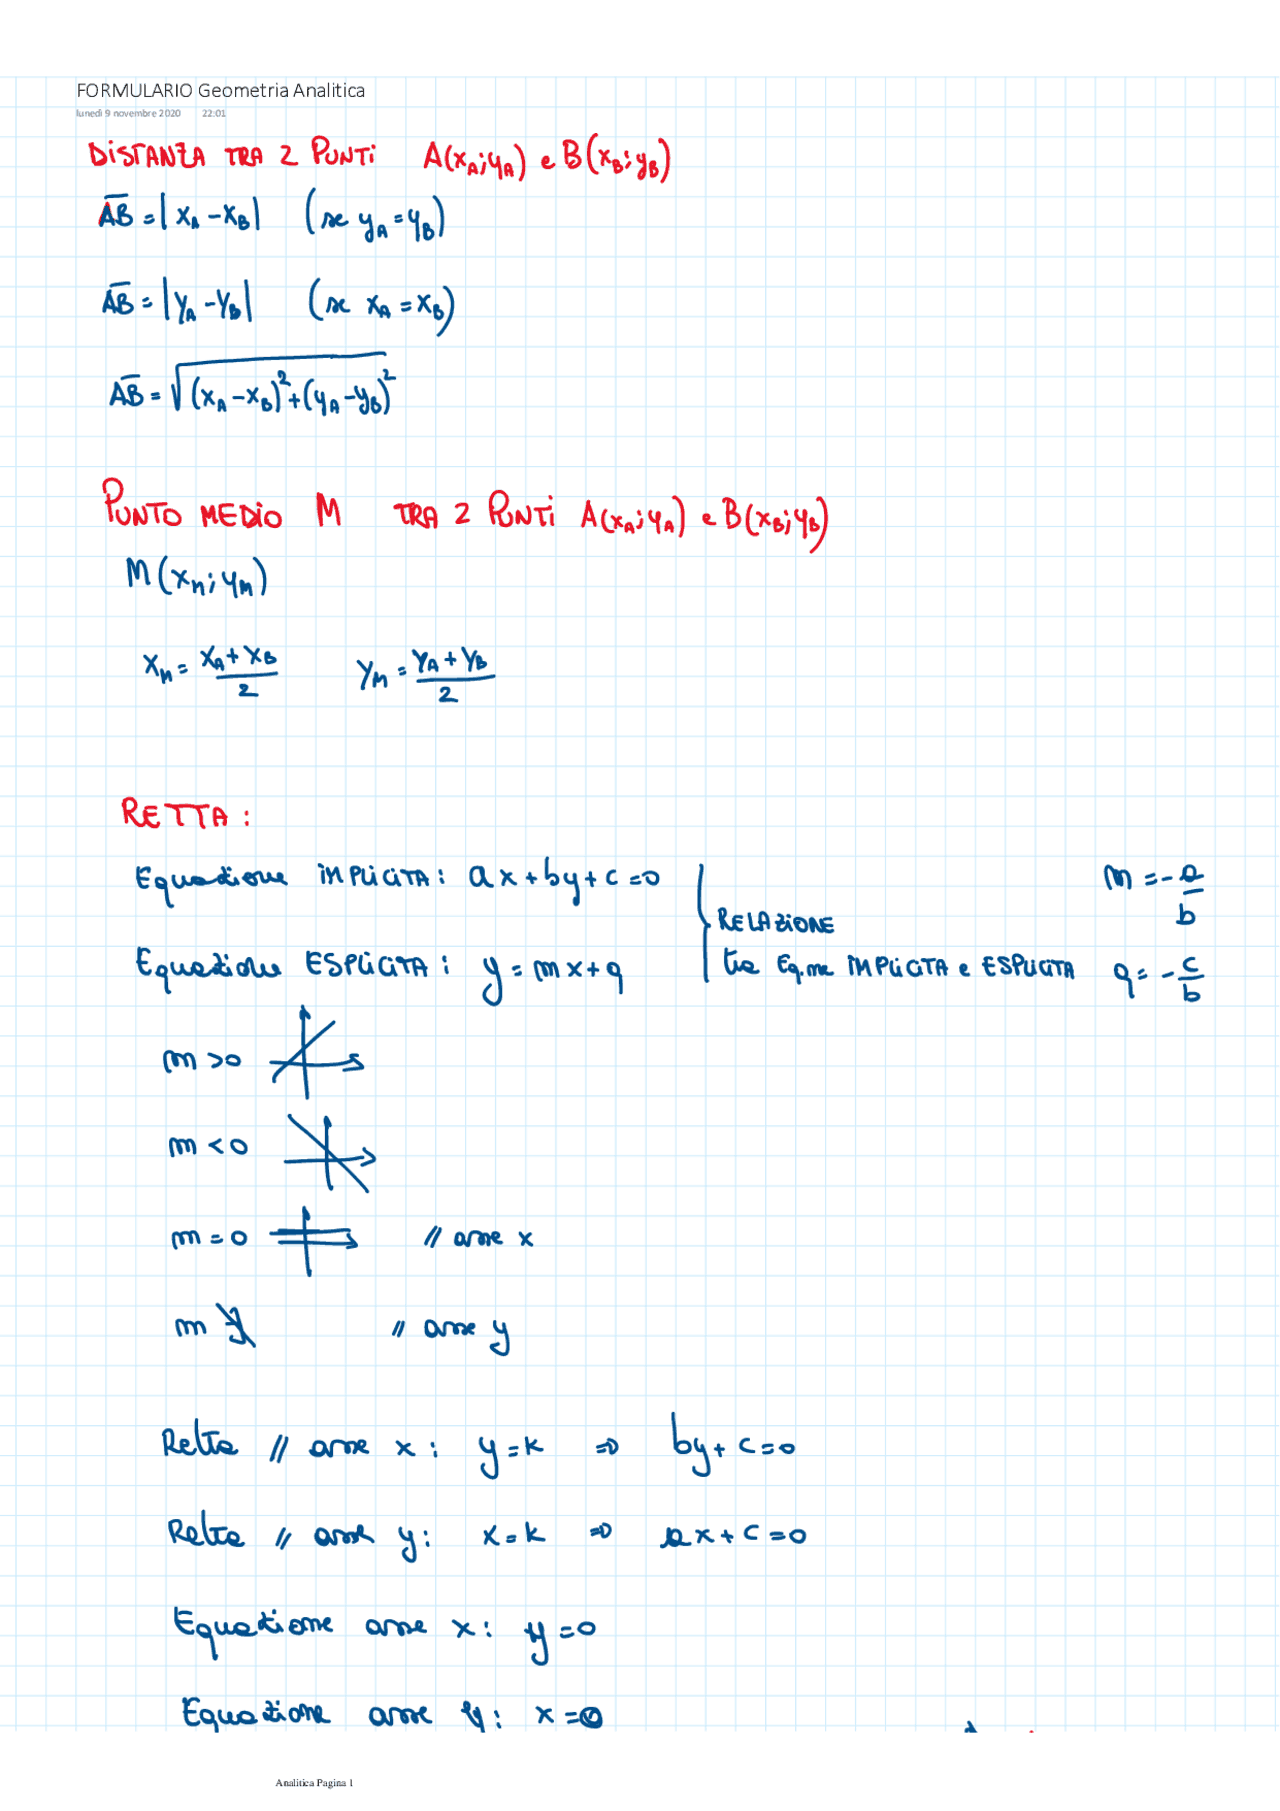 FORMULARIO Geometria Analitica
lunedì 9 novembre 2020 22:01
DISTANZA TRA 2 PUNTI A(xA;yA) e B(xB;yB)
AB = |xA - xB| (se yA = yB)
AB = |yA - yB| (se xA = xB)
AB = √(xA - xB)² + (yA - yB)²
PUNTO MEDIO M TRA 2 PUNTI A(xA;yA) e B(xB;yB)
M(xM;yM)
xM = (xA + xB)/2 yM = (yA + yB)/2
RETTA:
Equazione IMPLICITA: ax + by + c = 0 m = -a/b
RELAZIONE
Equazione ESPLICITA: y = mx + q tra Eq.ne IMPLICITA e ESPLICITA q = -c/b
m > 0
m < 0
m = 0 // asse x
m ∄ // asse y
Retta // asse x: y = k ⇒ by + c = 0
Retta // asse y: x = k ⇒ ax + c = 0
Equazione asse x: y = 0
Equazione asse y: x = 0
Analitica Pagina 1